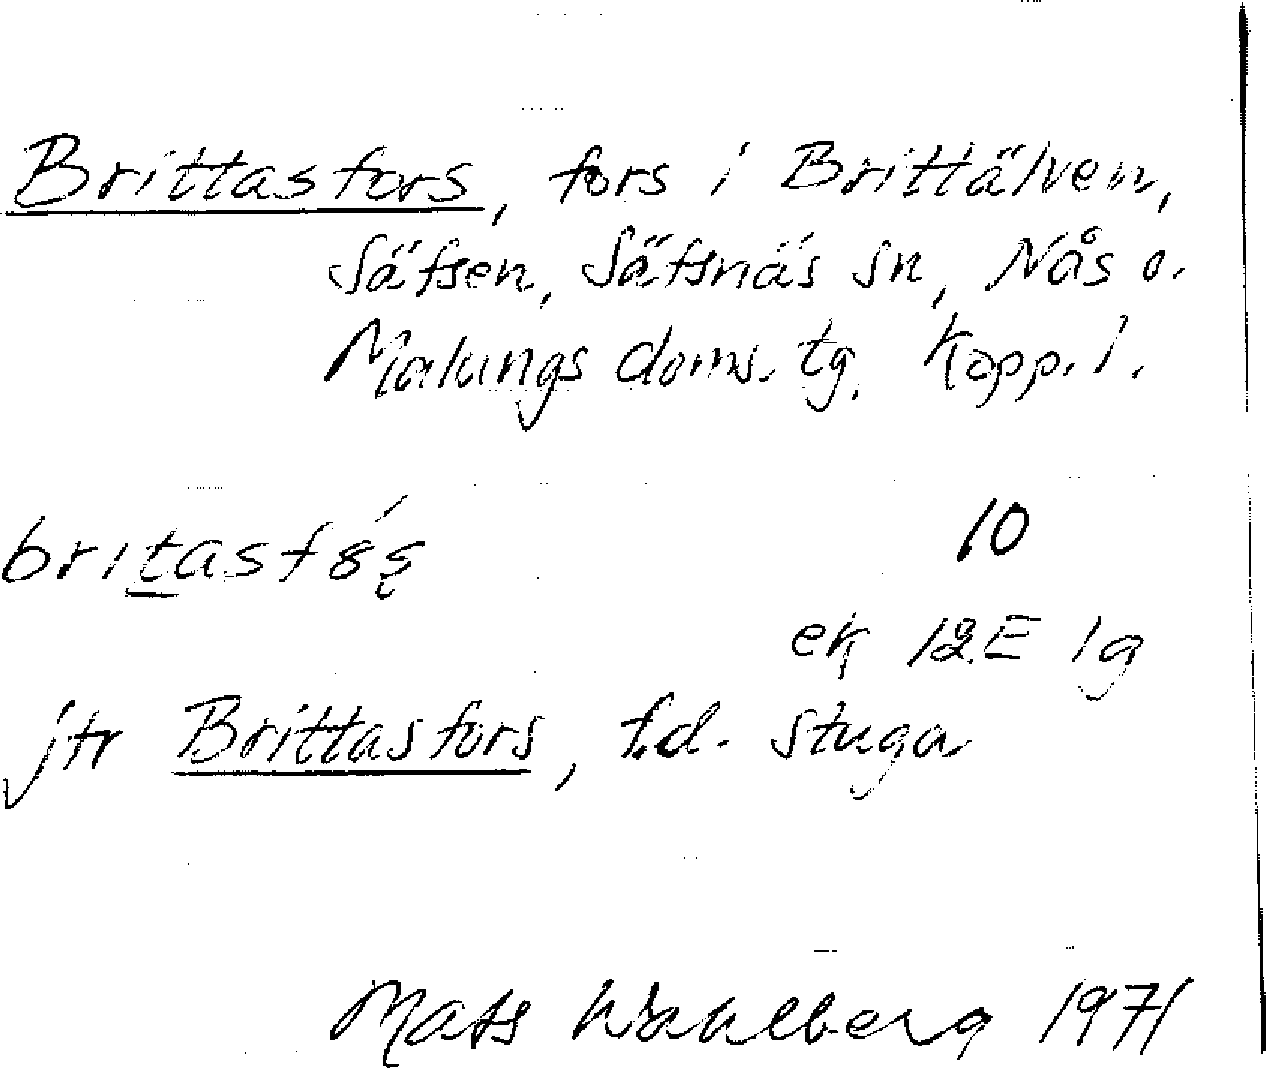 Brittasfors, fors i Brittälven,
Säfsen, Säfsnäs sn, Nås o.
Malungs doms. tg. Kopp. l.
10
ek 12E 1g
jfr Brittasfors, f.d. stuga
Mats Wahlberg 1971